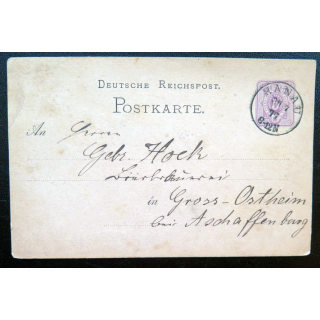 DEUTSCHE REICHSPOST.
POSTKARTE.
HANAU
77
An Herrn
Gebr. Hock
Bierbrauerei
in Gross-Ostheim
bei Aschaffenburg